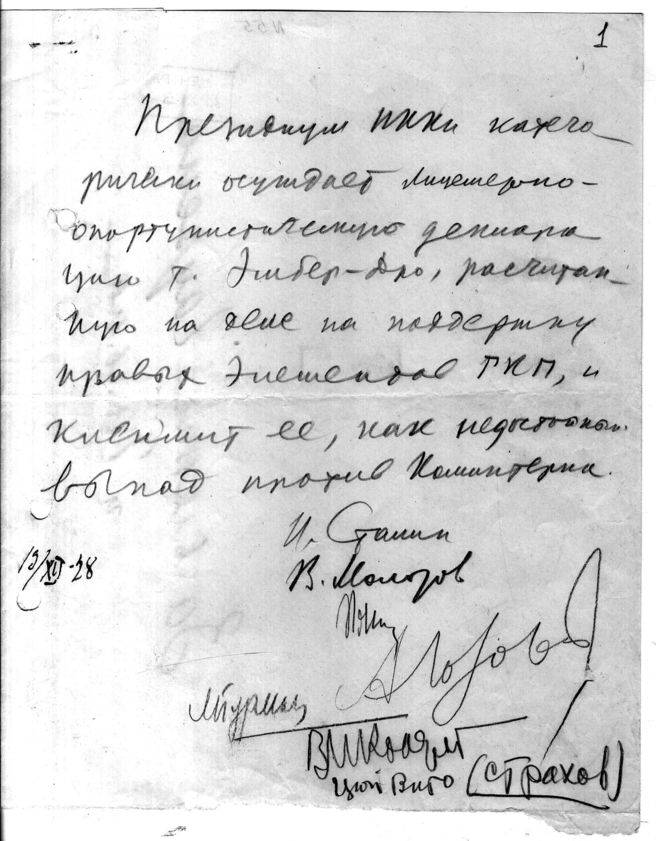 1
Президиум ИККИ катего
рически осуждает лицемерно-
опортунистическую деклара
цию т. Эмбер-Дро, расчитан-
ную на деле на поддержку
правых элементов ГКП, и
клеймит ее, как недостойный
выпад против Коминтерна.
И. Сталин
В. Молотов
19/XII-28
А Лозов
Цюй Вито (Страхов)